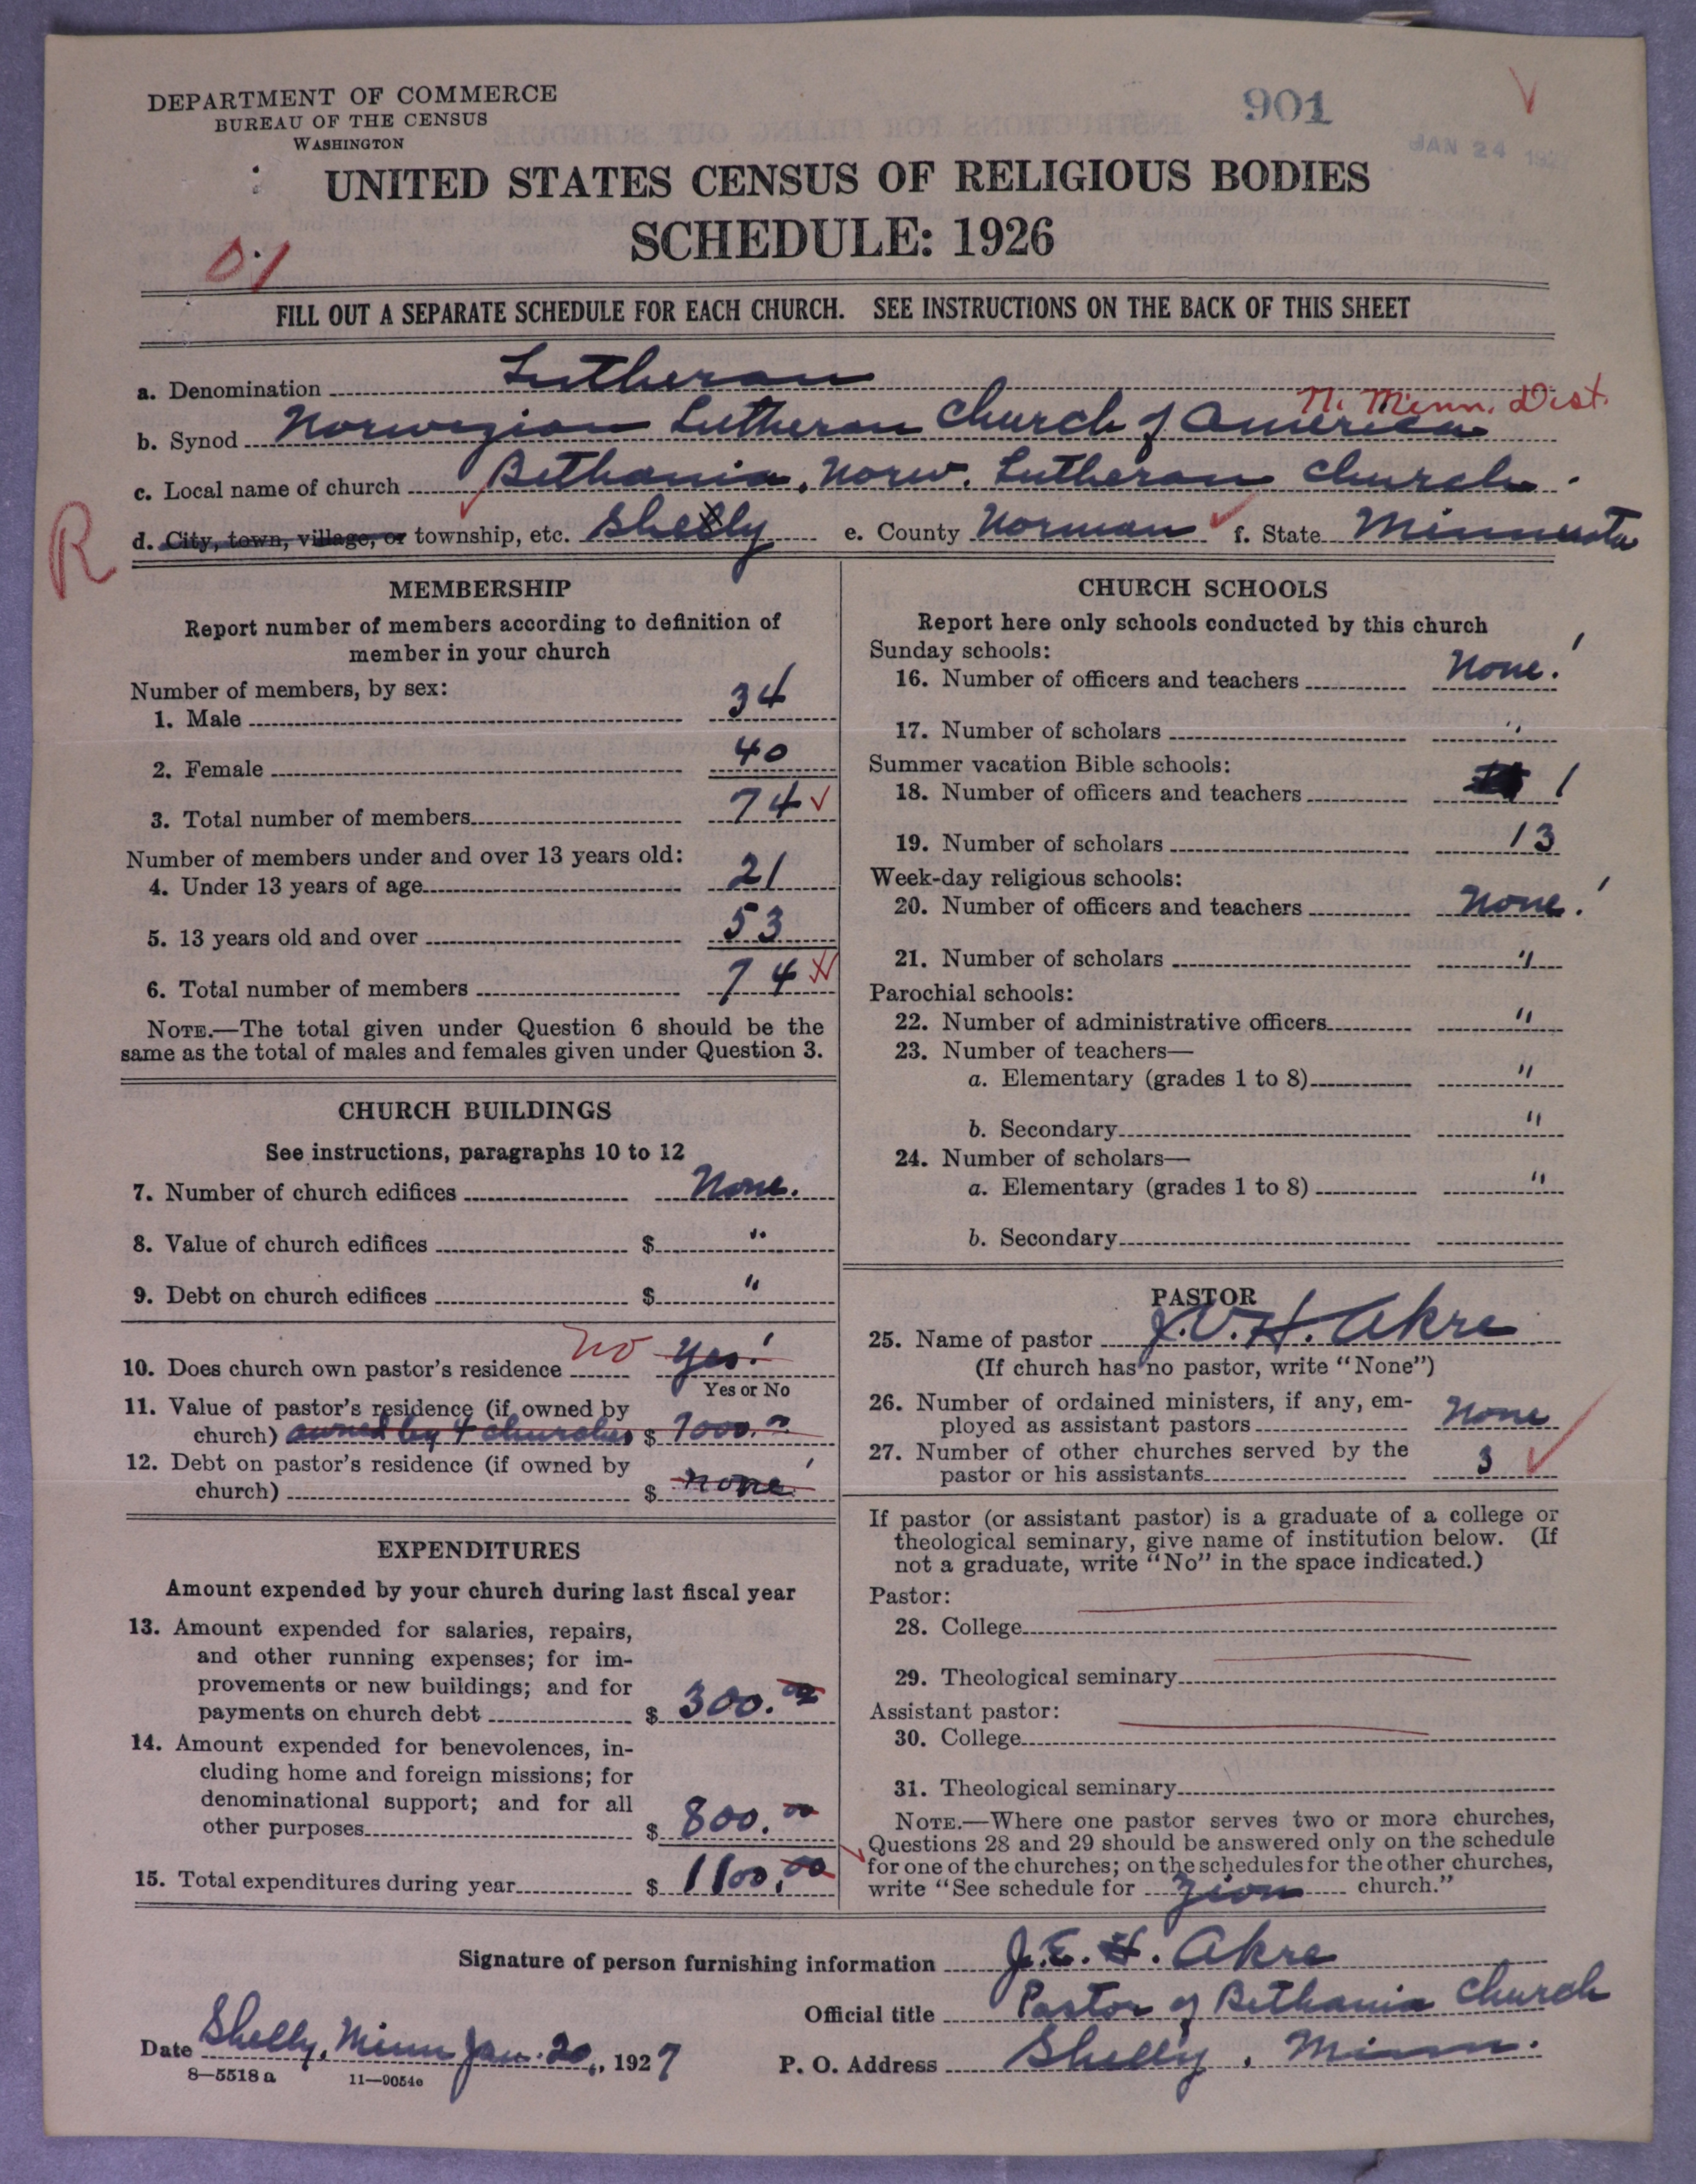 DEPARTMENT OF COMMERCE
BUREAU OF THE CENSUS
WASHINGTON
901
JAN 24 192
UNITED STATES CENSUS OF RELIGIOUS BODIES
SCHEDULE: 1926
01
FILL OUT A SEPARATE SCHEDULE FOR EACH CHURCH. SEE INSTRUCTIONS ON THE BACK OF THIS SHEET
a. Denomination Lutheran
N. Minn. Dist.
b. Synod Norwegian Lutheran Church of America
c. Local name of church Bethania, Norw. Lutheran Church.
R
d. City, town, village, or township, etc. Shelly e. County Norman f. State Minnesota
MEMBERSHIP
Report number of members according to definition of
member in your church
Number of members, by sex:
1. Male 34
2. Female 40
3. Total number of members 74
Number of members under and over 13 years old:
4. Under 13 years of age 21
5. 13 years old and over 53
6. Total number of members 74
NOTE.—The total given under Question 6 should be the
same as the total of males and females given under Question 3.
CHURCH BUILDINGS
See instructions, paragraphs 10 to 12
7. Number of church edifices None.
8. Value of church edifices $ "
9. Debt on church edifices $ "
10. Does church own pastor's residence no Yes!
Yes or No
11. Value of pastor's residence (if owned by
church) owned by 4 churches $ 7000.00
12. Debt on pastor's residence (if owned by
church) $ none
EXPENDITURES
Amount expended by your church during last fiscal year
13. Amount expended for salaries, repairs,
and other running expenses; for im-
provements or new buildings; and for
payments on church debt $ 300.00
14. Amount expended for benevolences, in-
cluding home and foreign missions; for
denominational support; and for all
other purposes $ 800.00
15. Total expenditures during year $ 1100.00
CHURCH SCHOOLS
Report here only schools conducted by this church
Sunday schools:
16. Number of officers and teachers None.
17. Number of scholars "
Summer vacation Bible schools:
18. Number of officers and teachers 1
19. Number of scholars 13
Week-day religious schools:
20. Number of officers and teachers None.
21. Number of scholars "
Parochial schools:
22. Number of administrative officers "
23. Number of teachers—
a. Elementary (grades 1 to 8) "
b. Secondary "
24. Number of scholars—
a. Elementary (grades 1 to 8) "
b. Secondary
PASTOR
25. Name of pastor J.V.H. Akre
(If church has no pastor, write "None")
26. Number of ordained ministers, if any, em-
ployed as assistant pastors None
27. Number of other churches served by the
pastor or his assistants 3
If pastor (or assistant pastor) is a graduate of a college or
theological seminary, give name of institution below. (If
not a graduate, write "No" in the space indicated.)
Pastor:
28. College
29. Theological seminary
Assistant pastor:
30. College
31. Theological seminary
NOTE.—Where one pastor serves two or more churches,
Questions 28 and 29 should be answered only on the schedule
for one of the churches; on the schedules for the other churches,
write "See schedule for Zion church."
Signature of person furnishing information J.E.H. Akre
Official title Pastor of Bethania Church
Date Shelly, Minn Jan. 20, 1927
P. O. Address Shelly, Minn.
8—5518 a 11—9054e